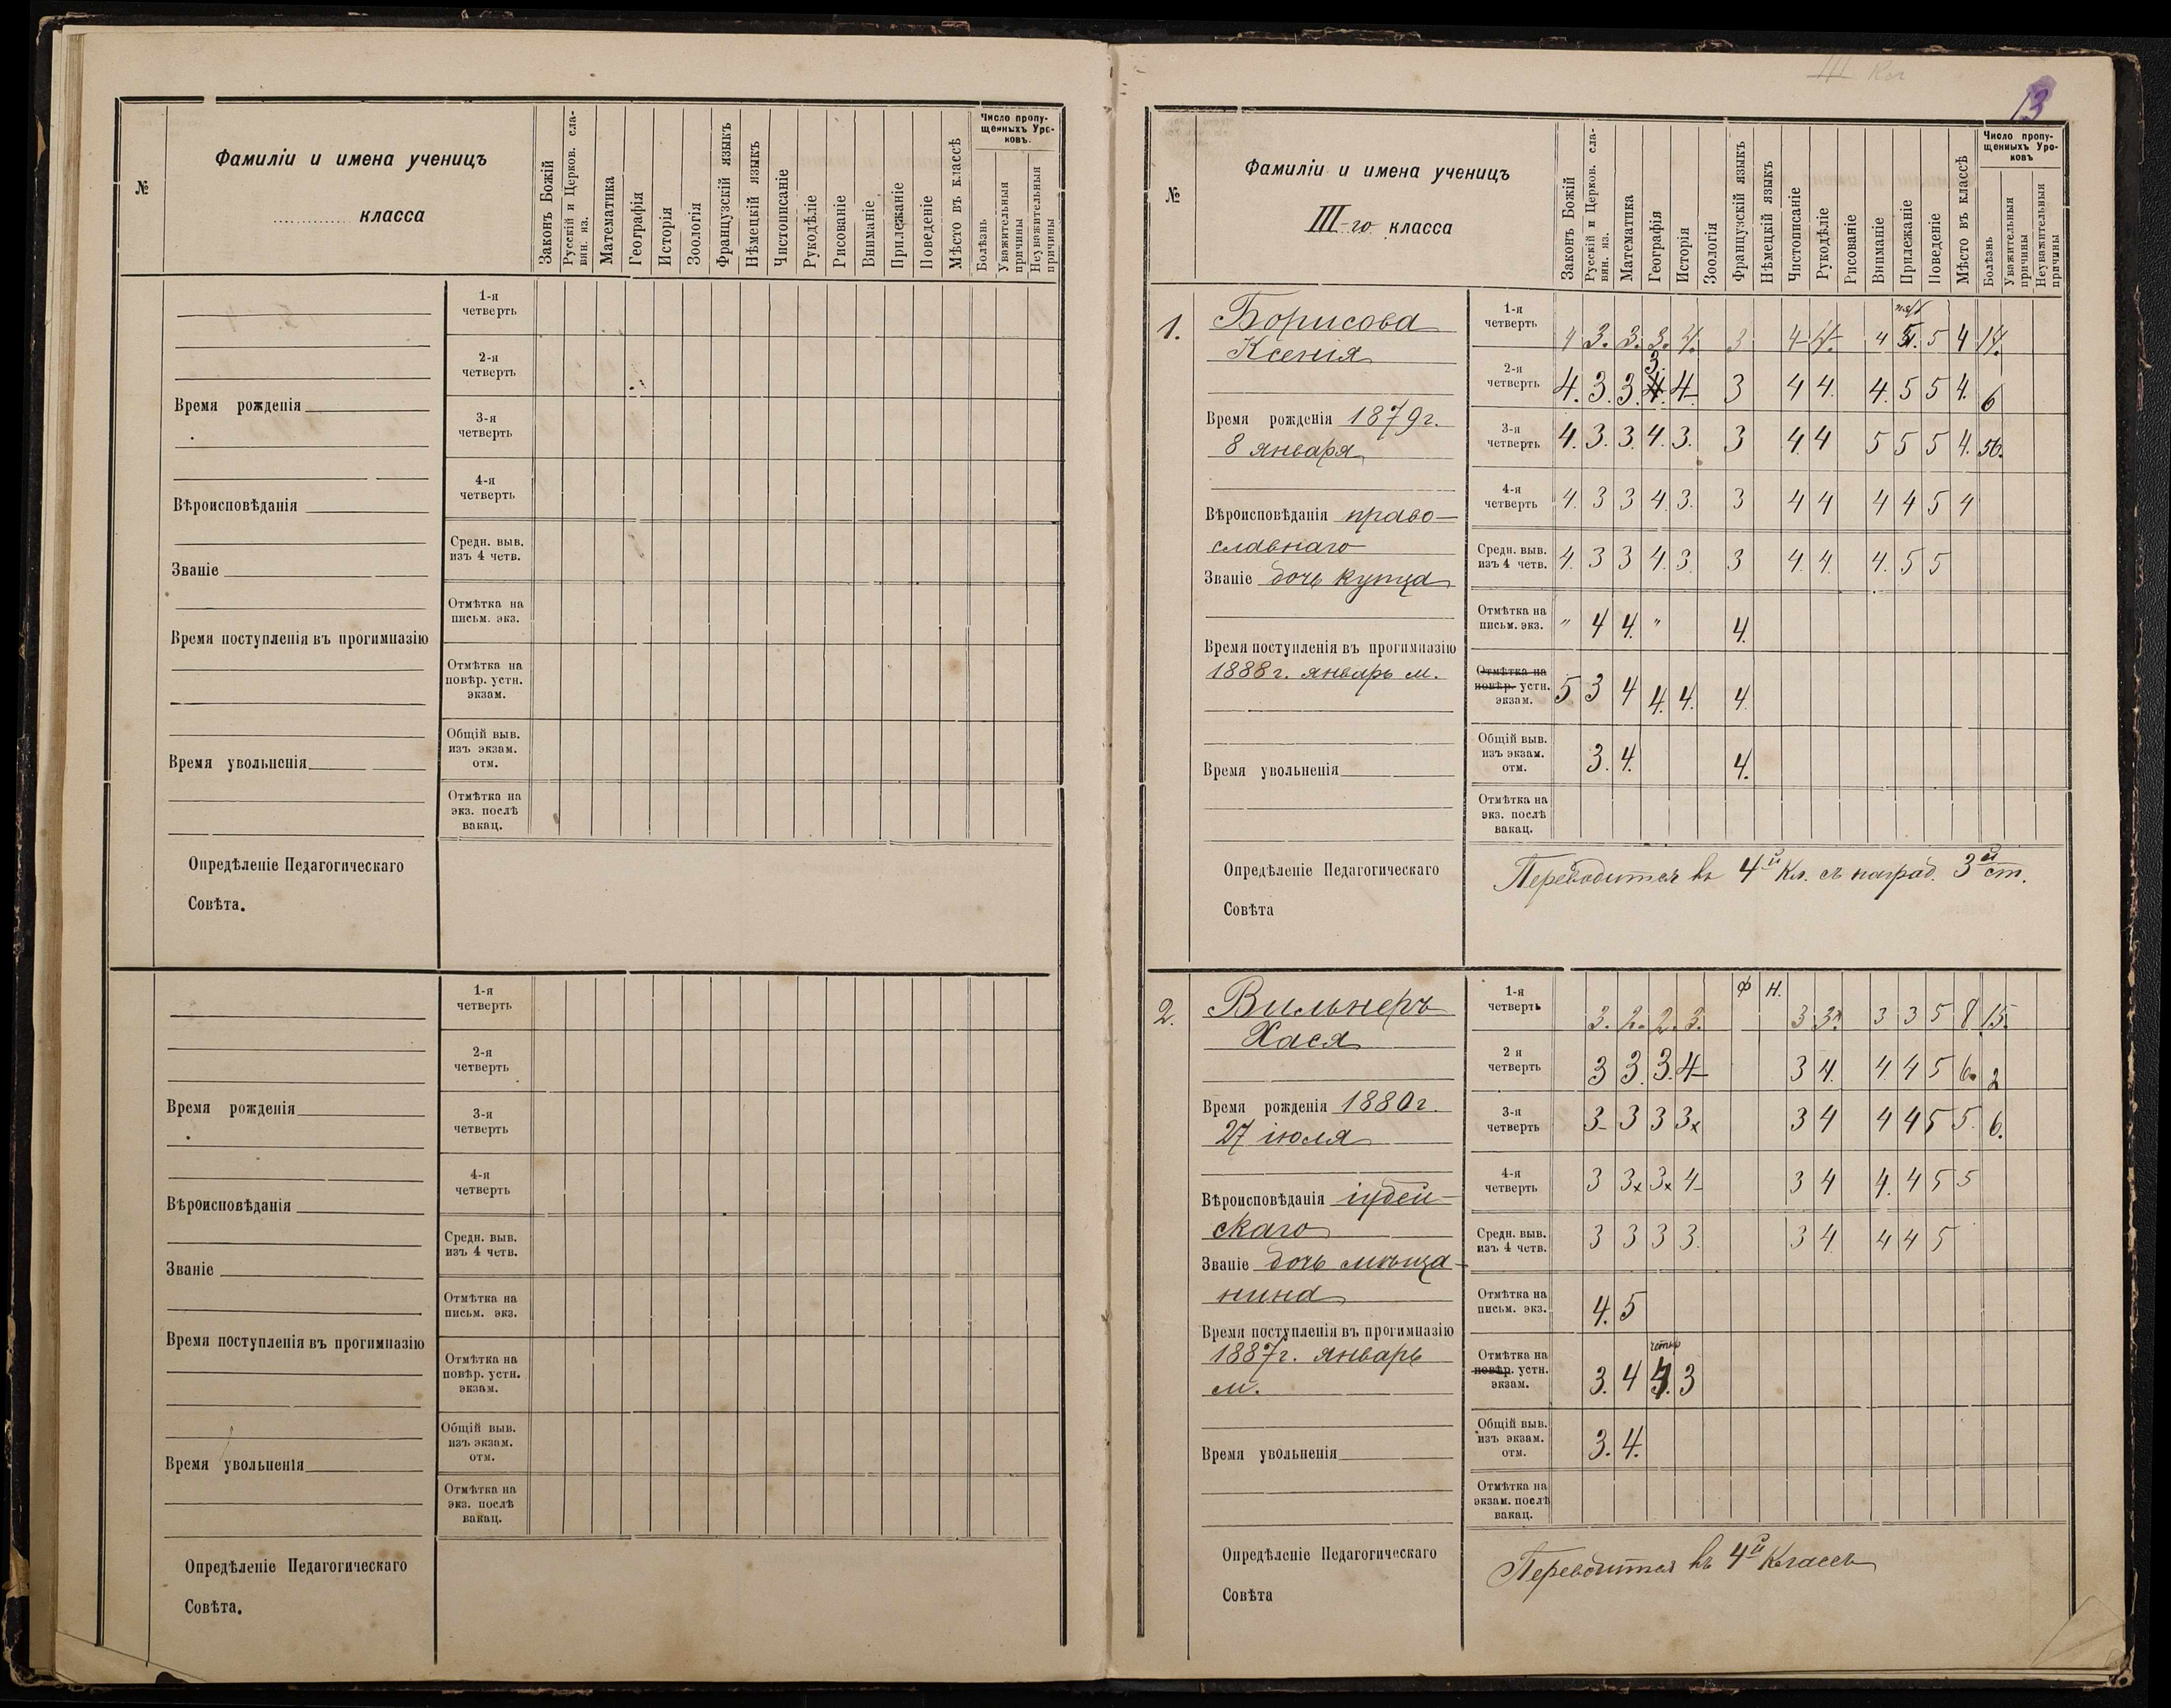 №
Фамиліи и имена ученицъ
класса
Законъ Божій
Русскій и Церков. сла-
вян. яз.
Математика
Географія
Исторія
Зоологія
Французскій языкъ
Нѣмецкій языкъ
Чистописаніе
Рукодѣліе
Рисованіе
Вниманіе
Прилежаніе
Поведеніе
Мѣсто въ классѣ
Число пропу-
щенныхъ Уро-
ковъ.
Болѣзнь
Уважительныя
причины
Неуважительныя
причины
1-я
четверть
2-я
четверть
3-я
четверть
4-я
четверть
Средн. выв.
изъ 4 четв.
Отмѣтка на
письм. экз.
Отмѣтка на
повѣр. устн.
экзам.
Общій выв.
изъ экзам.
отм.
Отмѣтка на
экз. послѣ
вакац.
Время рожденія
Вѣроисповѣданія
Званіе
Время поступленія въ прогимназію
Время увольненія
Опредѣленіе Педагогическаго
Совѣта.
1-я
четверть
2-я
четверть
3-я
четверть
4-я
четверть
Средн. выв.
изъ 4 четв.
Отмѣтка на
письм. экз.
Отмѣтка на
повѣр. устн.
экзам.
Общій выв.
изъ экзам.
отм.
Отмѣтка на
экз. послѣ
вакац.
Время рожденія
Вѣроисповѣданія
Званіе
Время поступленія въ прогимназію
Время увольненія
Опредѣленіе Педагогическаго
Совѣта.
III Кл
13
№
Фамиліи и имена ученицъ
III-го класса
Законъ Божій
Русскій и Церков. сла-
вян. яз.
Математика
Географія
Исторія
Зоологія
Французскій языкъ
Нѣмецкій языкъ
Чистописаніе
Рукодѣліе
Рисованіе
Вниманіе
Прилежаніе
Поведеніе
Мѣсто въ классѣ
Число пропу-
щенныхъ Уро-
ковъ
Болѣзнь
Уважительныя
причины
Неуважительныя
причины
1.
Борисова
Ксенія
Время рожденія 1879г.
8 января
Вѣроисповѣданія право-
славнаго
Званіе дочь купца
Время поступленія въ прогимназію
1888г. январь м.
Время увольненія
1-я
четверть 4 3. 3. 3. 4. 3 4 4. 4 5. 5 4 14.
3.
2-я
четверть 4. 3. 3. 4. 4 3 4 4. 4. 5 5 4. 6
3-я
четверть 4. 3. 3. 4. 3. 3 4. 4 5 5 5 4. 56.
4-я
четверть 4. 3 3 4. 3. 3 4 4 4 4 5 4
Средн. выв.
изъ 4 четв. 4. 3 3 4. 3. 3 4 4. 4. 5 5
Отмѣтка на
письм. экз. " 4 4. " 4.
Отмѣтка на
повѣр. устн.
экзам. 5 3 4 4. 4. 4.
Общій выв.
изъ экзам.
отм. 3. 4. 4.
Отмѣтка на
экз. послѣ
вакац.
Опредѣленіе Педагогическаго
Совѣта
Переводится въ 4й Кл. съ наград. 3ей ст.
2.
Вильнеръ
Хася
Время рожденія 1880г.
27 іюля
Вѣроисповѣданія іудей-
скаго
Званіе дочь мѣща-
нина
Время поступленія въ прогимназію
1887г. январь
м.
Время увольненія
Ф Н.
1-я
четверть 3. 2. 2. 3. 3 3. 3 3 5 8 15.
2 я
четверть 3 3. 3. 4 3 4. 4. 4 5 6. 2
3-я
четверть 3 3 3 3x 3 4 4 4 5 5. 6.
4-я
четверть 3 3x 3x 4 3 4 4. 4 5 5
Средн. выв.
изъ 4 четв. 3 3 3 3. 3 4. 4 4 5
Отмѣтка на
письм. экз. 4. 5
четыр
Отмѣтка на
повѣр. устн.
экзам. 3. 4 4. 3
Общій выв.
изъ экзам.
отм. 3. 4.
Отмѣтка на
экзам. послѣ
вакац.
Опредѣленіе Педагогическаго
Совѣта
Переводится въ 4й Классъ